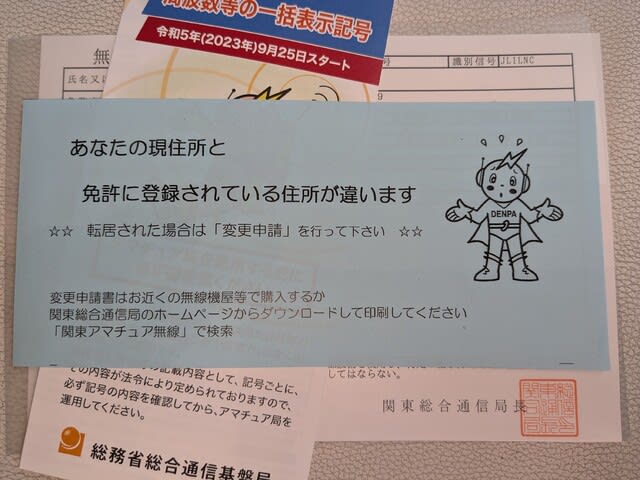 周波数等の一括表示記号
令和5年(2023年)9月25日スタート
無
号
識別信号 JL1LNC
氏名又は
あなたの現住所と
免許に登録されている住所が違います
☆☆ 転居された場合は「変更申請」を行って下さい ☆☆
DENPA
変更申請書はお近くの無線機屋等で購入するか
関東総合通信局のホームページからダウンロードして印刷してください
「関東アマチュア無線」で検索
の記載内容として、記号ごとに、
その内容が法令により定められておりますので、
必ず記号の内容を確認してから、アマチュア局を
運用してください。
してはならない。
関東総合通信局長
総務省総合通信基盤局